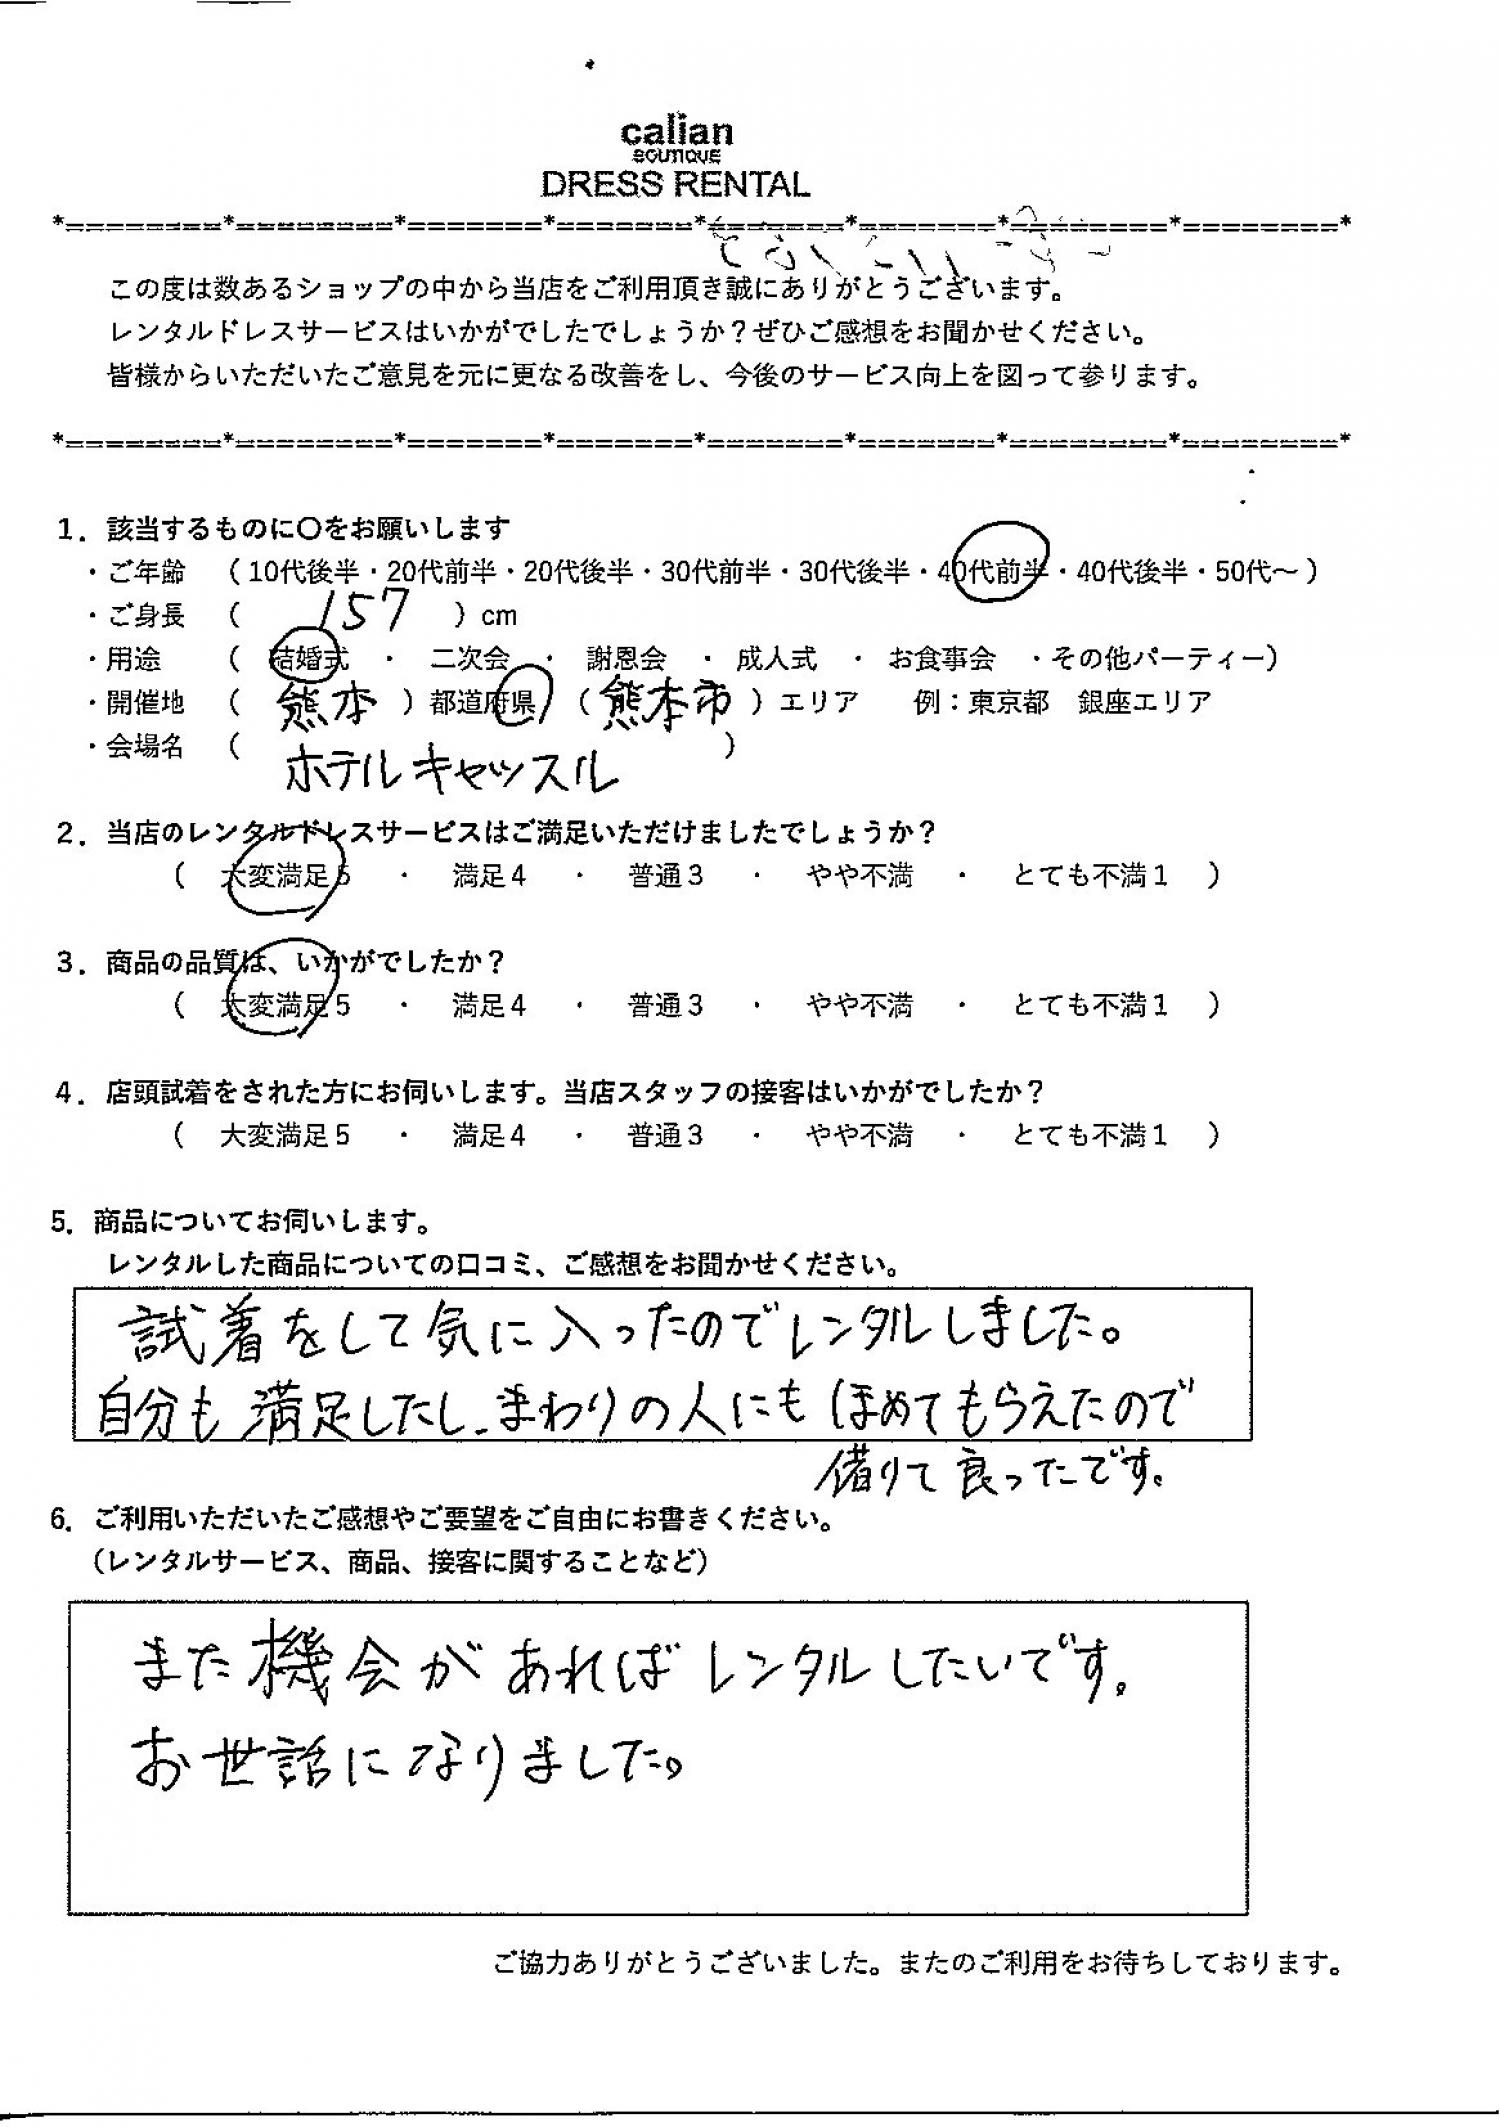 calian
BOUTIQUE
DRESS RENTAL
*========*========*=======*=======*=======*=======*========*========*
この度は数あるショップの中から当店をご利用頂き誠にありがとうございます。
レンタルドレスサービスはいかがでしたでしょうか？ぜひご感想をお聞かせください。
皆様からいただいたご意見を元に更なる改善をし、今後のサービス向上を図って参ります。
*========*========*=======*=======*=======*=======*========*========*
1．該当するものに〇をお願いします
・ご年齢　（10代後半・20代前半・20代後半・30代前半・30代後半・40代前半・40代後半・50代～）
・ご身長　（　157　）cm
・用途　（　結婚式　・　二次会　・　謝恩会　・　成人式　・　お食事会　・その他パーティー）
・開催地　（　熊本　）都道府県　（　熊本市　）エリア　　例：東京都　銀座エリア
・会場名　（　ホテルキャッスル　）
2．当店のレンタルドレスサービスはご満足いただけましたでしょうか？
（　大変満足5　・　満足4　・　普通3　・　やや不満　・　とても不満1　）
3．商品の品質は、いかがでしたか？
（　大変満足5　・　満足4　・　普通3　・　やや不満　・　とても不満1　）
4．店頭試着をされた方にお伺いします。当店スタッフの接客はいかがでしたか？
（　大変満足5　・　満足4　・　普通3　・　やや不満　・　とても不満1　）
5．商品についてお伺いします。
レンタルした商品についての口コミ、ご感想をお聞かせください。
試着をして気に入ったのでレンタルしました。
自分も満足したし、まわりの人にもほめてもらえたので
借りて良ったです。
6．ご利用いただいたご感想やご要望をご自由にお書きください。
（レンタルサービス、商品、接客に関することなど）
また機会があればレンタルしたいです。
お世話になりました。
ご協力ありがとうございました。またのご利用をお待ちしております。